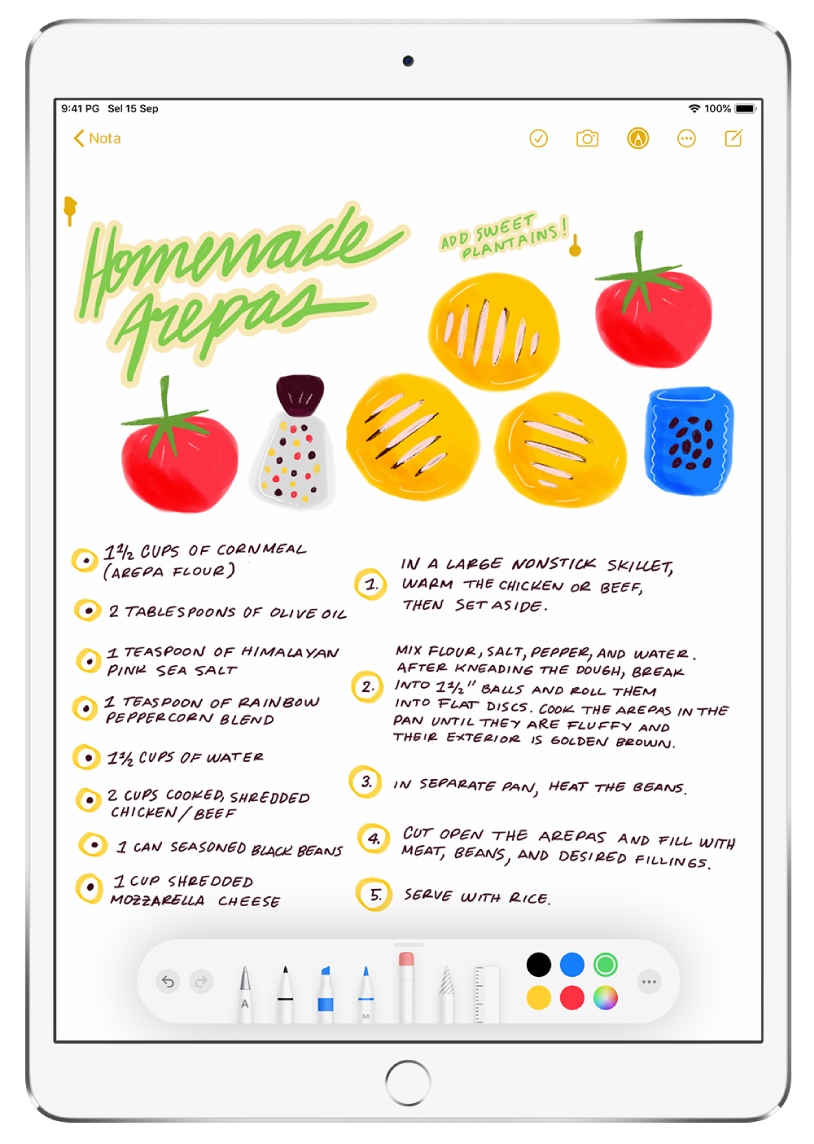 9:41 PG Sel 15 Sep
100%
Nota
Homemade
Arepas
ADD SWEET
PLANTAINS!
1 1/2 CUPS OF CORNMEAL
(AREPA FLOUR)
2 TABLESPOONS OF OLIVE OIL
1 TEASPOON OF HIMALAYAN
PINK SEA SALT
1 TEASPOON OF RAINBOW
PEPPERCORN BLEND
1 1/2 CUPS OF WATER
2 CUPS COOKED, SHREDDED
CHICKEN/BEEF
1 CAN SEASONED BLACK BEANS
1 CUP SHREDDED
MOZZARELLA CHEESE
1. IN A LARGE NONSTICK SKILLET,
WARM THE CHICKEN OR BEEF,
THEN SET ASIDE.
2. MIX FLOUR, SALT, PEPPER, AND WATER.
AFTER KNEADING THE DOUGH, BREAK
INTO 1 1/2" BALLS AND ROLL THEM
INTO FLAT DISCS. COOK THE AREPAS IN THE
PAN UNTIL THEY ARE FLUFFY AND
THEIR EXTERIOR IS GOLDEN BROWN.
3. IN SEPARATE PAN, HEAT THE BEANS.
4. CUT OPEN THE AREPAS AND FILL WITH
MEAT, BEANS, AND DESIRED FILLINGS.
5. SERVE WITH RICE.
A
50